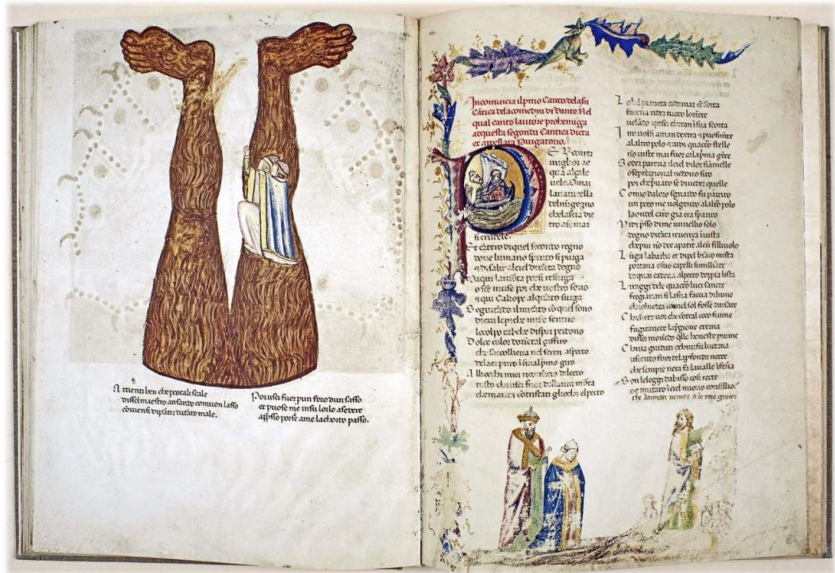 A ttienti ben che pcotali scale
dissel maestro ansando comon lasso
coviensi dipartir datato male.
Poi usci fuor pun foro dun sasso
et puose me insu lorlo asedere
apsso porse ame lachorto passo.
Incomincia ilpmo Canto dela sa
Cātica dela comedya di dante. Nel
qual canto lautore prohemiçça
aquesta segonda Cantica dicta
et appellata Purgatorio.
P Er correr
miglor ac
qua alçale
vele Omai
la navicella
del mīgegno
che lascia die
tro a se mar
si crudele
Et cātero di quel secondo regno
dove lumano spirito si purga
e di salir alciel diventa degno
Ma qui la morta poesi resurga
o sce muse poi che vostro sono
e qui Caliope alquāto surga
Seguitādo il mio cāto cō quel sono
di cui le piche misere sentiro
lo colpo tal che disperar perdono
Dolce color dorietal çaffiro
che saccoglieva nel seren aspecto
del aer puro īfinal pmo giro
A li occhi miei ricomīcio dilecto
tosto che usci fuor dellaura morta
che mavea cōtristati gliocchi el pecto
Lo bel pianeta cadamar cōforta
faceva rider tutto loriete
velādo i pesci cherā ī sua scorta
I mi volsi aman dextra e puosi mēte
alaltro polo e vidi quactro stelle
nō viste mai fuor cala pma gēte
Goder pareva il ciel di lor fiamelle
o septētrional vedovo sito
poi che pvato se di veder quelle
Como dalor sguardo fu partito
un poco me volgendo alaltro polo
la ondel carro gia era sparito
Vidi psso di me un veglio solo
degno di tāta reverēça ī vista
che piu nō dee apatre alcū figliuolo
Lunga la barba et di pel bianco mista
portava e suoi capelli simigliante
de quai cadeva al pecto doppia lista
Li raggi dele quactro luci sancte
fregiavan si la sua faccia di lume
chio l vedea comel sol fosse davante
Chi siete voi che cōtral ceco fiume
fugito avete la pgione eterna
dissel movēdo quelle honeste piume
Chi va guidati o chi vi fu lucerna
uscendo fuor dela pfonda nocte
che sempre nera fa la valle īferna
Son le leggi dabisso cosi rocte
o e mutato ī ciel nuovo consiglio
che dannati venite a le mie grotte